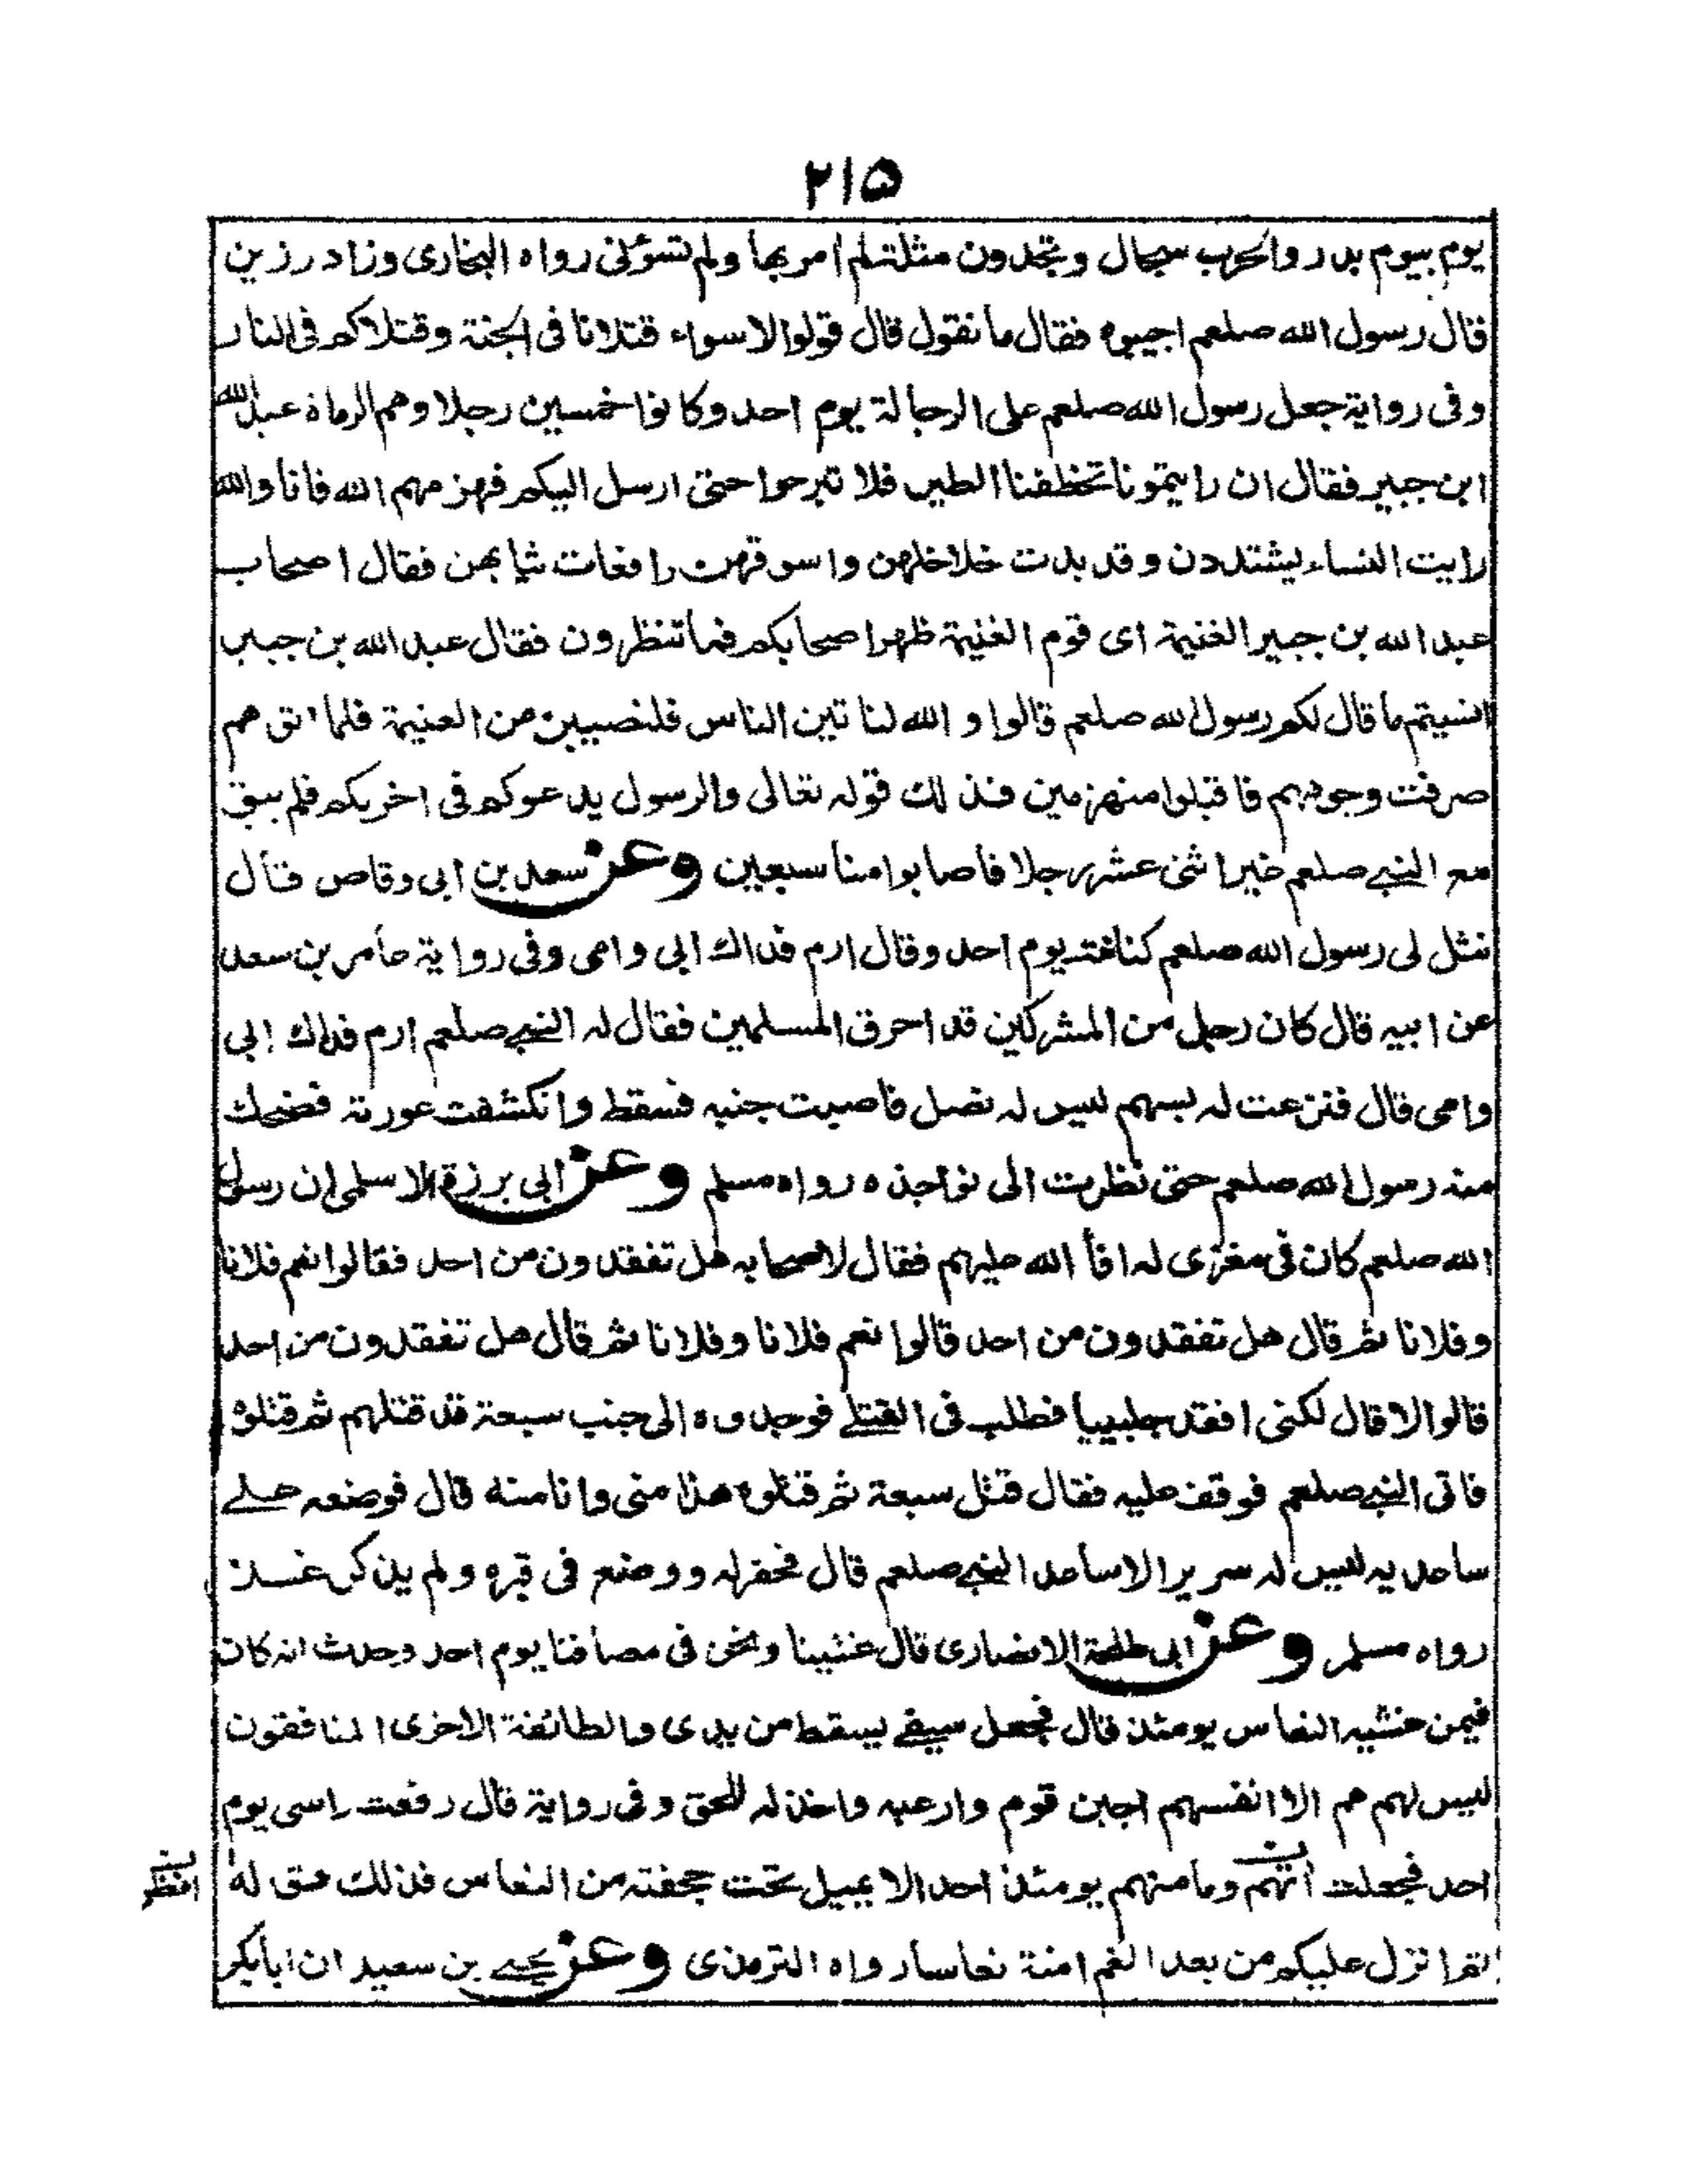 ٢١٥
يوم بيوم بدر والحرب سجال وتجدون مثلة لم امر بها ولم تسؤنى رواه البخارى وزاد رزين
قال رسول الله صلعم اجيبوه فقال ما نقول قال قولوا لا سواء قتلانا فى الجنة وقتلاكم فى النار
وفى رواية جعل رسول الله صلعم على الرجالة يوم احد وكانوا خمسين رجلا وهم الرماة عبد الله
ابن جبير فقال ان رايتمونا تخطفنا الطير فلا تبرحوا حتى ارسل اليكم فهزمهم الله فانا والله
رايت النساء يشتددن وقد بدت خلاخلهن واسوقهن رافعات ثيابهن فقال اصحاب
عبد الله بن جبير الغنيمة اى قوم الغنيمة ظهر اصحابكم فما تنظرون فقال عبد الله بن جبير
انسيتم ما قال لكم رسول الله صلعم قالوا و الله لنا تين الناس فلنصيبن من الغنيمة فلما اتوهم
صرفت وجوههم فاقبلوا منهزمين فذلك قوله تعالى والرسول يدعوكم فى اخريكم فلم يبق
مع النبى صلعم غير اثنى عشر رجلا فاصابوا منا سبعين وعن سعد بن ابى وقاص قال
نثل لى رسول الله صلعم كنانته يوم احد وقال ارم فداك ابى وامى وفى رواية عامر بن سعد
عن ابيه قال كان رجل من المشركين قد احرق المسلمين فقال له النبى صلعم ارم فداك ابى
وامى قال فنزعت له بسهم ليس له نصل فاصبت جنبه فسقط وانكشفت عورته فضحك
منه رسول الله صلعم حتى نظرت الى نواجذه رواه مسلم وعن ابى برزة الاسلمى ان رسول
الله صلعم كان فى مغزى له افأ الله عليهم فقال لاصحابه هل تفقدون من احد فقالوا نعم فلانا
وفلانا ثم قال هل تفقدون من احد قالوا نعم فلانا وفلانا ثم قال هل تفقدون من احد
قالوا لا قال لكنى افقد جليبيبا فطلب فى القتلى فوجدوه الى جنب سبعة قد قتلهم ثم قتلوه
فاتى النبى صلعم فوقف عليه فقال قتل سبعة ثم قتلوه هذا منى وانا منه قال فوضعه على
ساعديه ليس له سرير الا ساعد النبى صلعم قال فحفر له ووضع فى قبره ولم يذكر غسلا
رواه مسلم وعن ابى طلحة الانصارى قال غشينا ونحن فى مصافنا يوم احد وحدث انه كان
فيمن غشيه النعاس يومئذ قال فجعل سيفى يسقط من يدى والطائفة الاخرى المنافقون
ليس لهم هم الا انفسهم اجبن قوم وارعبه واخذله للحق وفى رواية قال رفعت راسى يوم
احد فجعلت وما منهم يومئذ احد الا يميل تحت حجفته من النعاس فذلك قوله
ثم انزل عليكم من بعد الغم امنة نعاسا رواه الترمذى وعن يحيى بن سعيد ان ابابكر